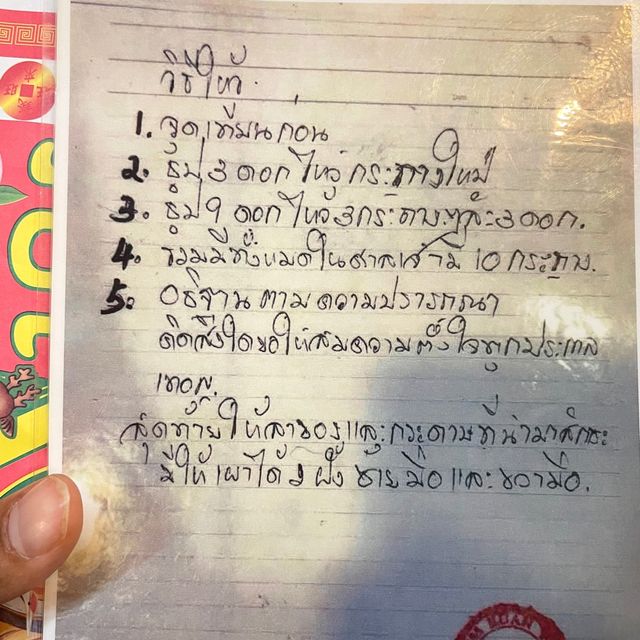 วิธีไหว้
1. จุดเทียนก่อน
2. ธูป 3 ดอก ไหว้กระถางใหญ่
3. ธูป 9 ดอก ไหว้ 3 กระถางๆละ 3 ดอก.
4. รวมมีทั้งหมดในศาลเจ้ามี 10 กระถาง.
5. อธิฐาน ตามความปรารถนา
คิดสิ่งใดขอให้สมความตั้งใจทุกประการ
เทอญ.
สุดท้ายให้ลาของและกระดาษที่นำมาสักการะ
มีให้เผาได้ 2 ฝั่ง ซ้ายมือและขวามือ.